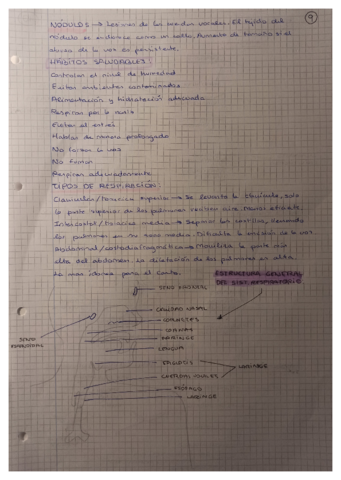 9
NODULOS → Lesiones de los pliegues vocales. El tejido del
nódulo se endurece como un callo. Aumenta de tamaño si el
abuso de la voz es persistente.
HÁBITOS SALUDABLES:
Controlar el nivel de humedad
Evitar ambientes contaminados
Alimentación y hidratación adecuada
Respirar por la nariz
Evitar el estrés
Hablar de manera prolongada
No forzar la voz
No fumar
Respirar adecuadamente
TIPOS DE RESPIRACIÓN:
Clavicular/Torácica superior → Se levanta la clavícula, solo
la parte superior de los pulmones reciben aire
Intercostal/Torácica media → Separar las costillas, llenando
los pulmones en su zona media. Dificulta la emisión de la voz
Abdominal/costodiafragmática → Moviliza la parte más
alta del abdomen. La dilatación de los pulmones es alta.
La más idónea para el canto.
ESTRUCTURA GENERAL
DEL SIST. RESPIRATORIO
SENO FRONTAL
CAVIDAD NASAL
CORNETES
FARINGE
LENGUA
SENO
ESFENOIDAL
EPIGLOTIS
LARINGE
CUERDAS VOCALES
ESÓFAGO
LARINGE